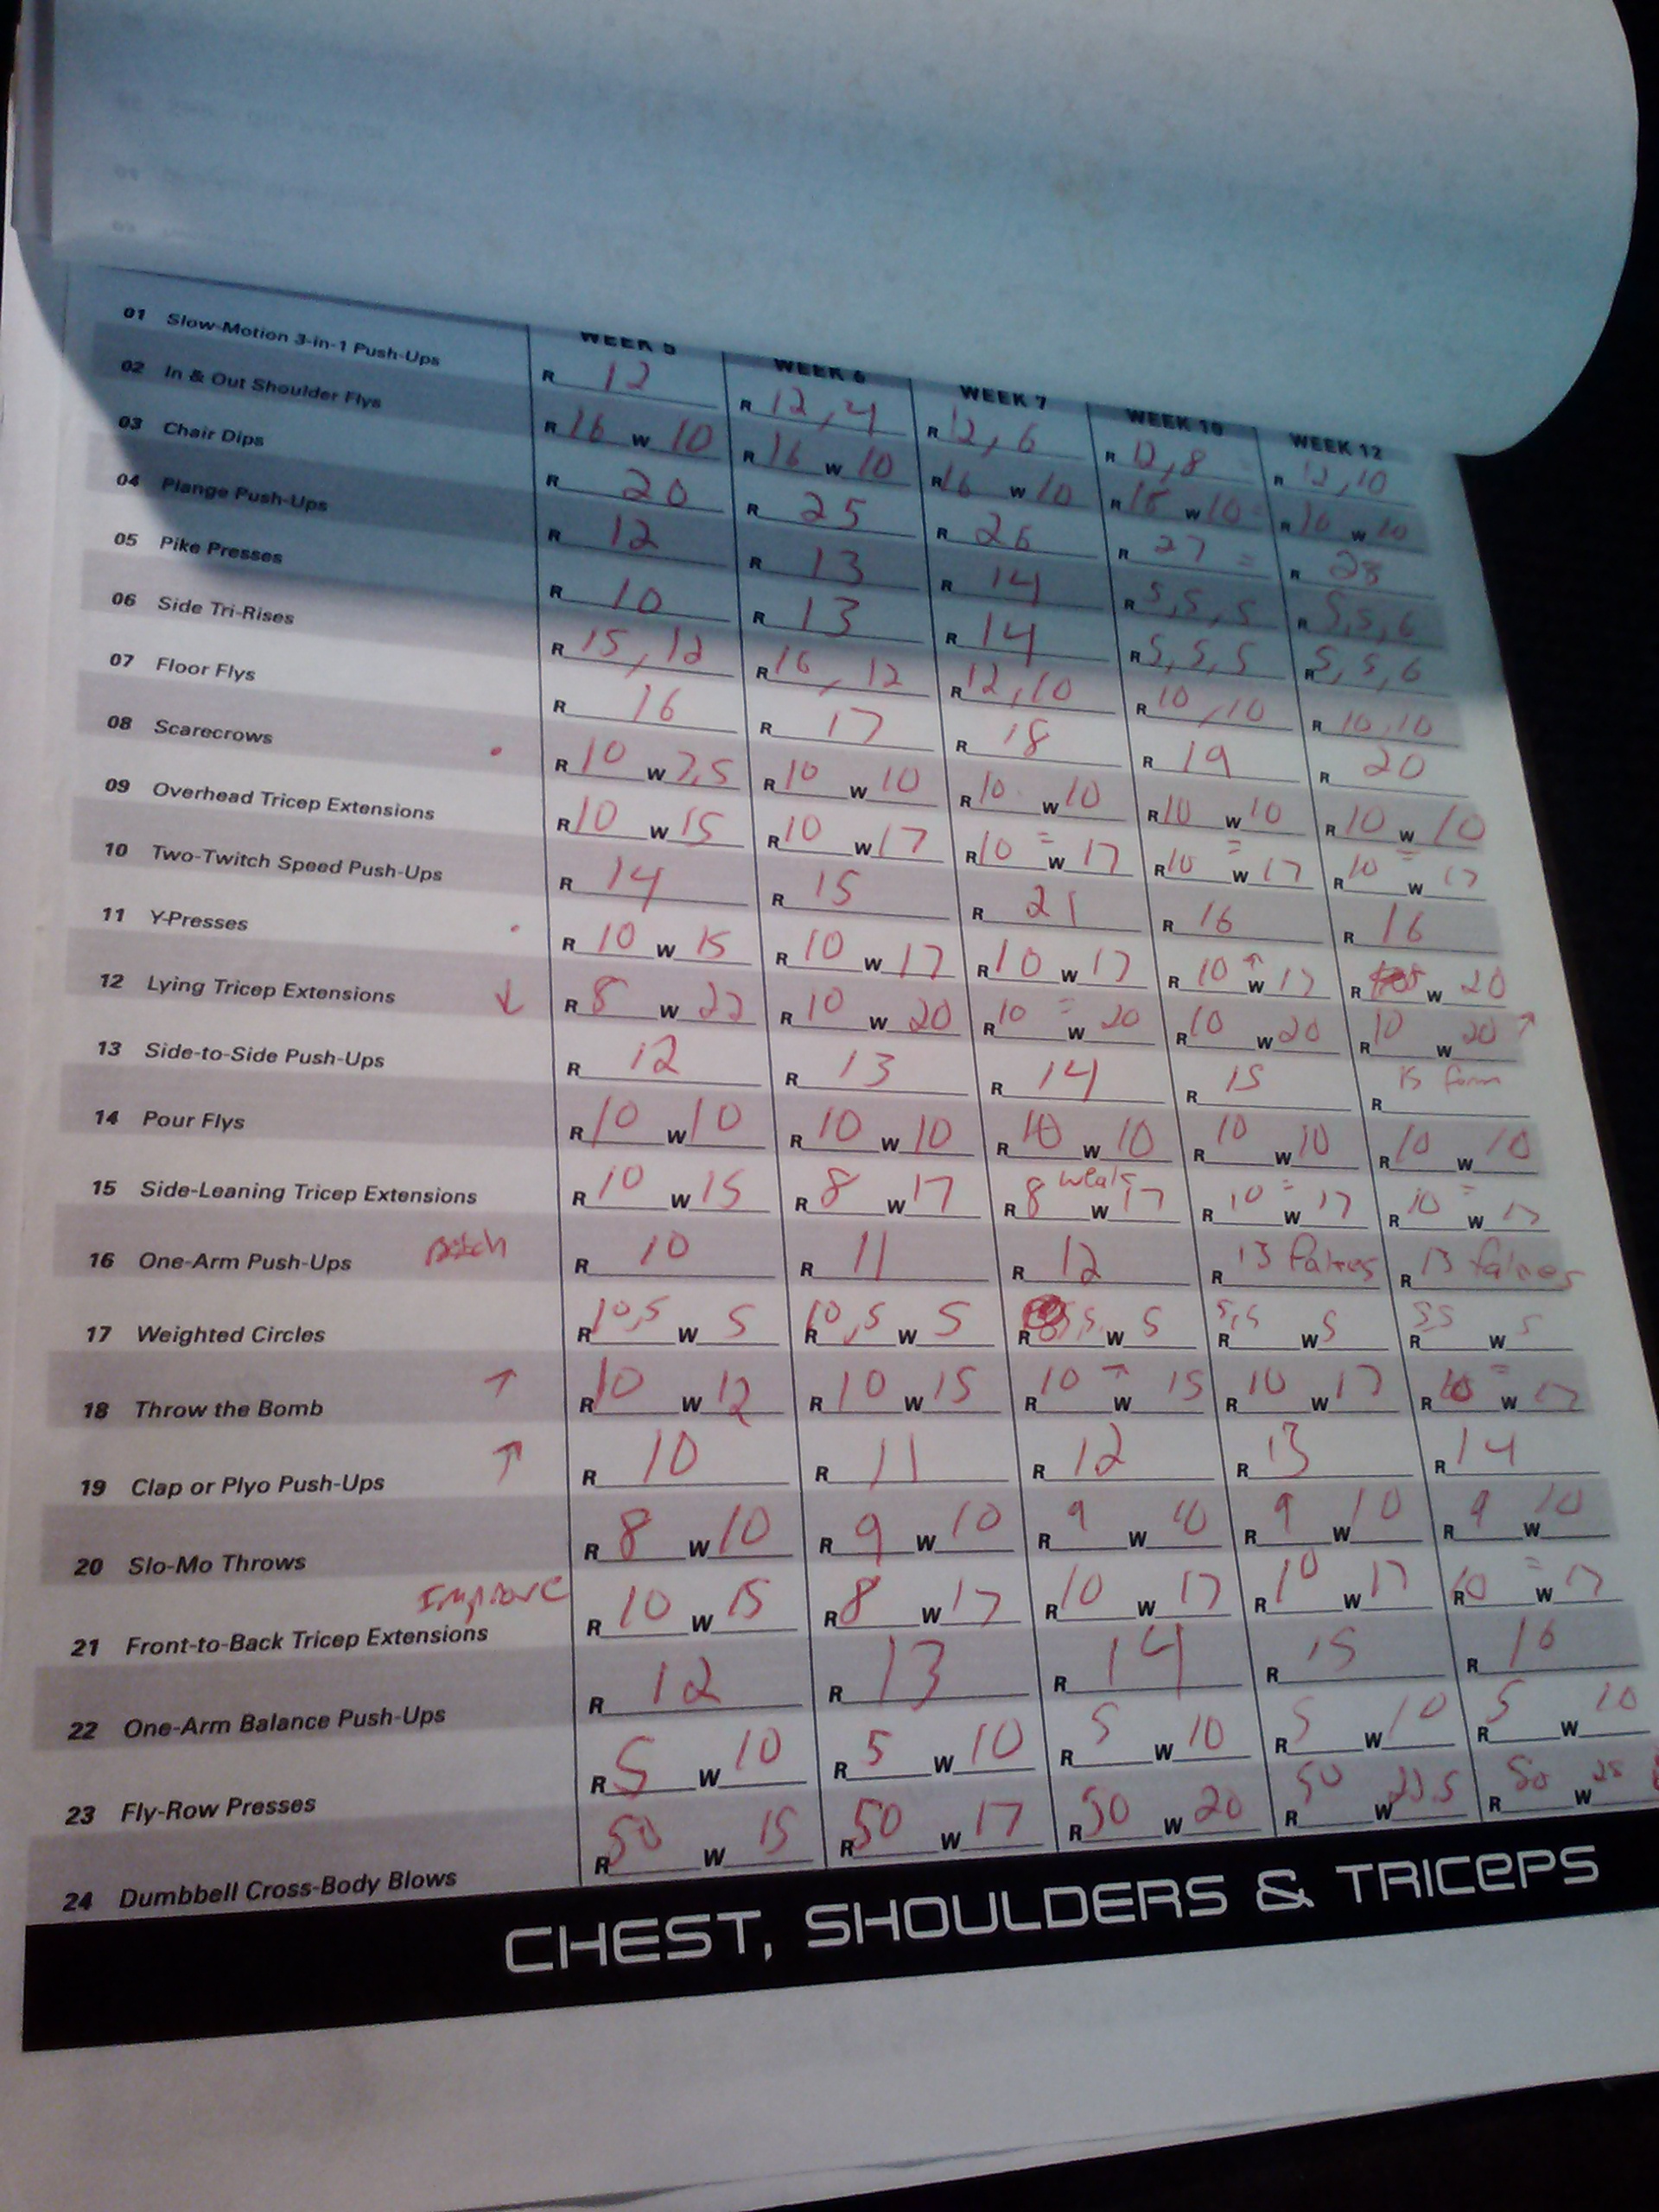 WEEK 5 WEEK 6 WEEK 7 WEEK 10 WEEK 12
01 Slow-Motion 3-in-1 Push-Ups R 12 R 12, 4 R 12, 6 R 12, 8 R 12, 10
02 In & Out Shoulder Flys R 16 W 10 R 16 W 10 R 16 W 10 R 16 W 10 = R 16 W 10
03 Chair Dips R 20 R 25 R 26 R 27 = R 28
04 Plange Push-Ups R 12 R 13 R 14 R 5, 5, 5 R 5, 5, 6
05 Pike Presses R 10 R 13 R 14 R 5, 5, 5 R 5, 5, 6
06 Side Tri-Rises R 15, 12 R 16, 12 R 12, 10 R 10, 10 R 10, 10
07 Floor Flys R 16 R 17 R 18 R 19 R 20
08 Scarecrows R 10 W 7,5 R 10 W 10 R 10 W 10 R 10 W 10 R 10 W 10
09 Overhead Tricep Extensions R 10 W 15 R 10 W 17 R 10 = W 17 R 10 = W 17 R 10 = W 17
10 Two-Twitch Speed Push-Ups R 14 R 15 R 21 R 16 R 16
11 Y-Presses R 10 W 15 R 10 W 17 R 10 W 17 R 10 ↑ W 17 R W 20
12 Lying Tricep Extensions ↓ R 8 W 22 R 10 W 20 R 10 = W 20 R 10 W 20 R 10 W 20 ↑
13 Side-to-Side Push-Ups R 12 R 13 R 14 R 15 R 15 form
14 Pour Flys R 10 W 10 R 10 W 10 R 10 W 10 R 10 W 10 R 10 W 10
15 Side-Leaning Tricep Extensions R 10 W 15 R 8 W 17 R 8 weak W 17 R 10 = W 17 R 10 = W 17
16 One-Arm Push-Ups R 10 R 11 R 12 R 13 R 13
17 Weighted Circles R 10,5 W 5 R 10,5 W 5 R 5,5 W 5 R 5,5 W 5 R 5,5 W 5
18 Throw the Bomb ↑ R 10 W 12 R 10 W 15 R 10 ↑ W 15 R 10 W 17 R 10 = W 17
19 Clap or Plyo Push-Ups ↑ R 10 R 11 R 12 R 13 R 14
20 Slo-Mo Throws R 8 W 10 R 9 W 10 R 9 W 10 R 9 W 10 R 9 W 10
21 Front-to-Back Tricep Extensions Improve R 10 W 15 R 8 W 17 R 10 W 17 R 10 W 17 R 10 = W 17
22 One-Arm Balance Push-Ups R 12 R 13 R 14 R 15 R 16
23 Fly-Row Presses R 5 W 10 R 5 W 10 R 5 W 10 R 5 W 10 R 5 W 10
24 Dumbbell Cross-Body Blows R 50 W 15 R 50 W 17 R 50 W 20 R 50 W 22.5 R 50 W 25
CHEST, SHOULDERS & TRICEPS